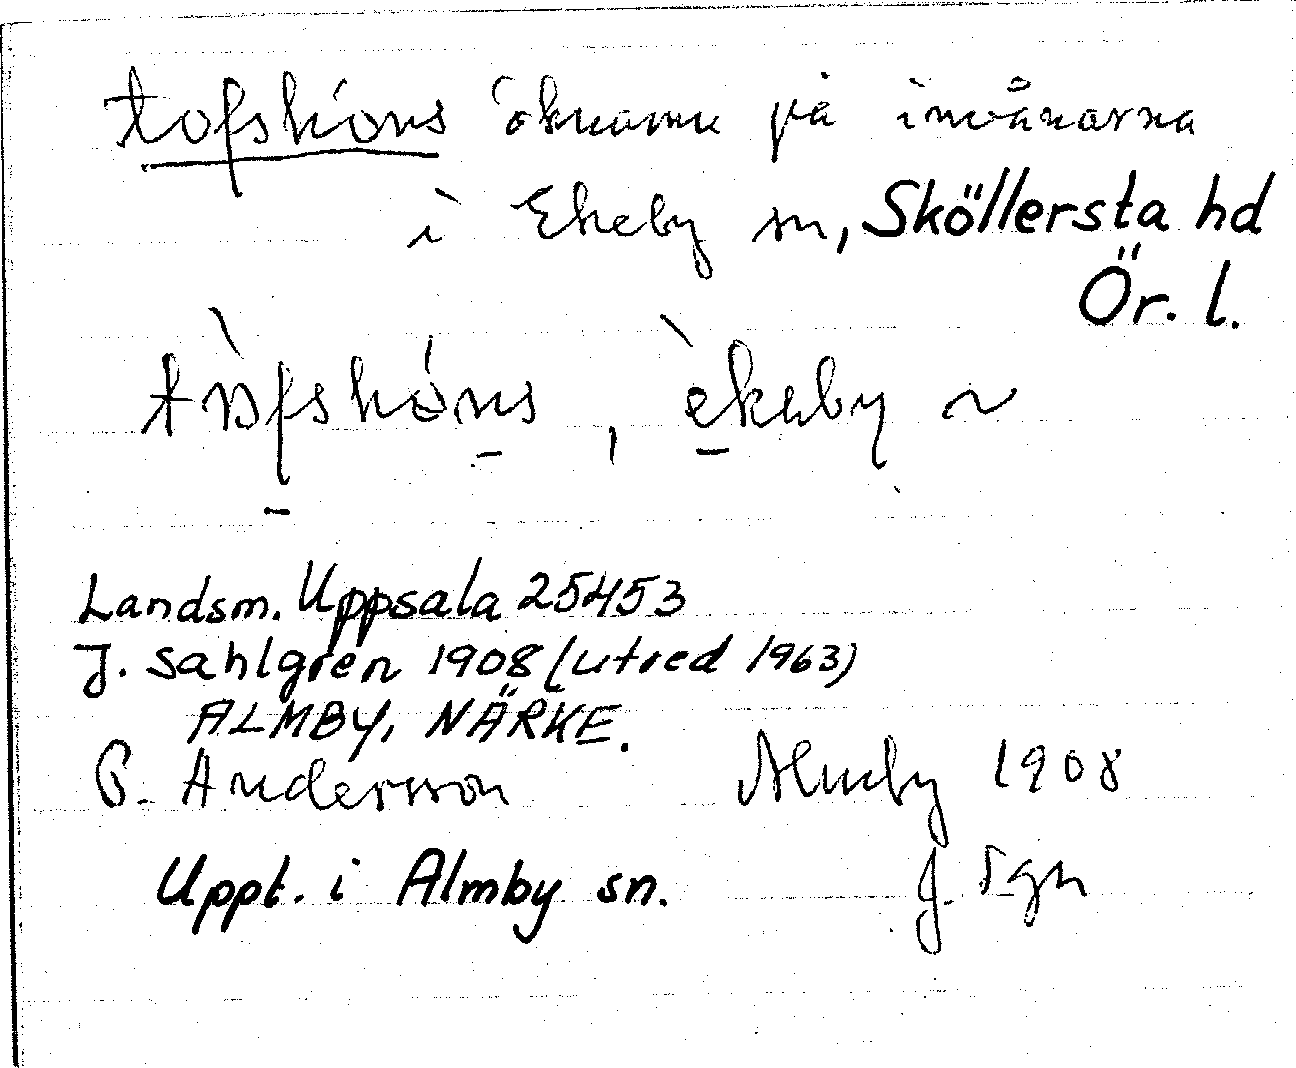 tofshöns öknamn på invånarna
i Ekeby sn, Sköllersta hd
Ör. l.
tòfshö́ns, èkeby ~
Landsm. Uppsala 25453
J. Sahlgren 1908 (utred 1963)
ALMBY, NÄRKE.
G. Andersson Almby 1908
Uppt. i Almby sn. J. Sgn